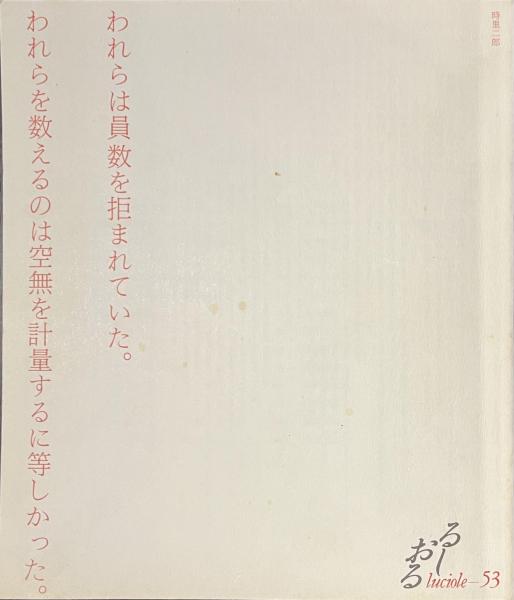 時里二郎
われらは員数を拒まれていた。
われらを数えるのは空無を計量するに等しかった。
るしおる
luciole—53